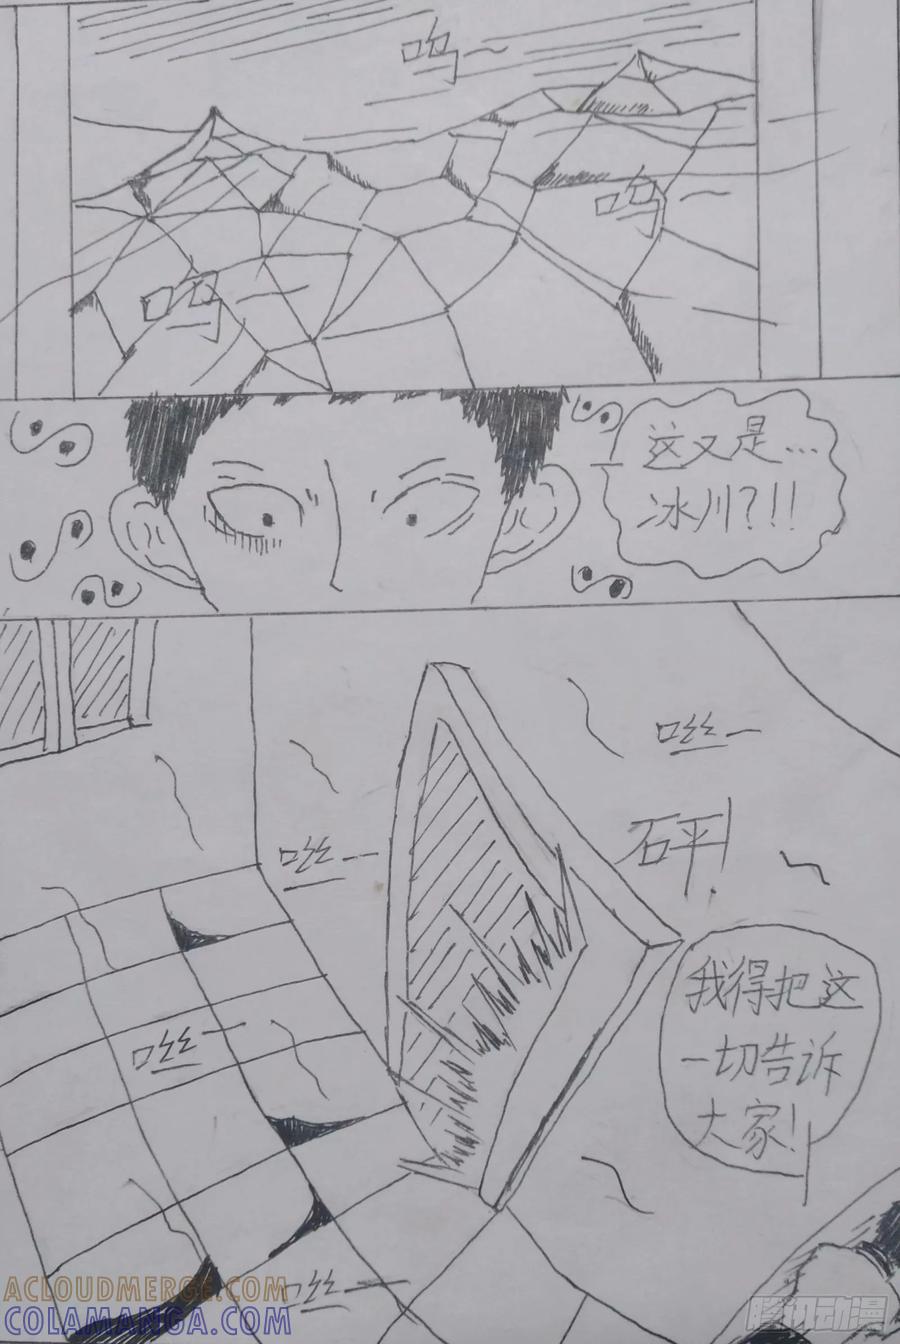 呜~
呜~
呜—
这又是…
冰川?!!
咝—
砰!
咝—
我得把这
一切告诉
大家!
咝—
咝—
ACLOUDMERGE.COM
COLAMANGA.COM
腾讯动漫